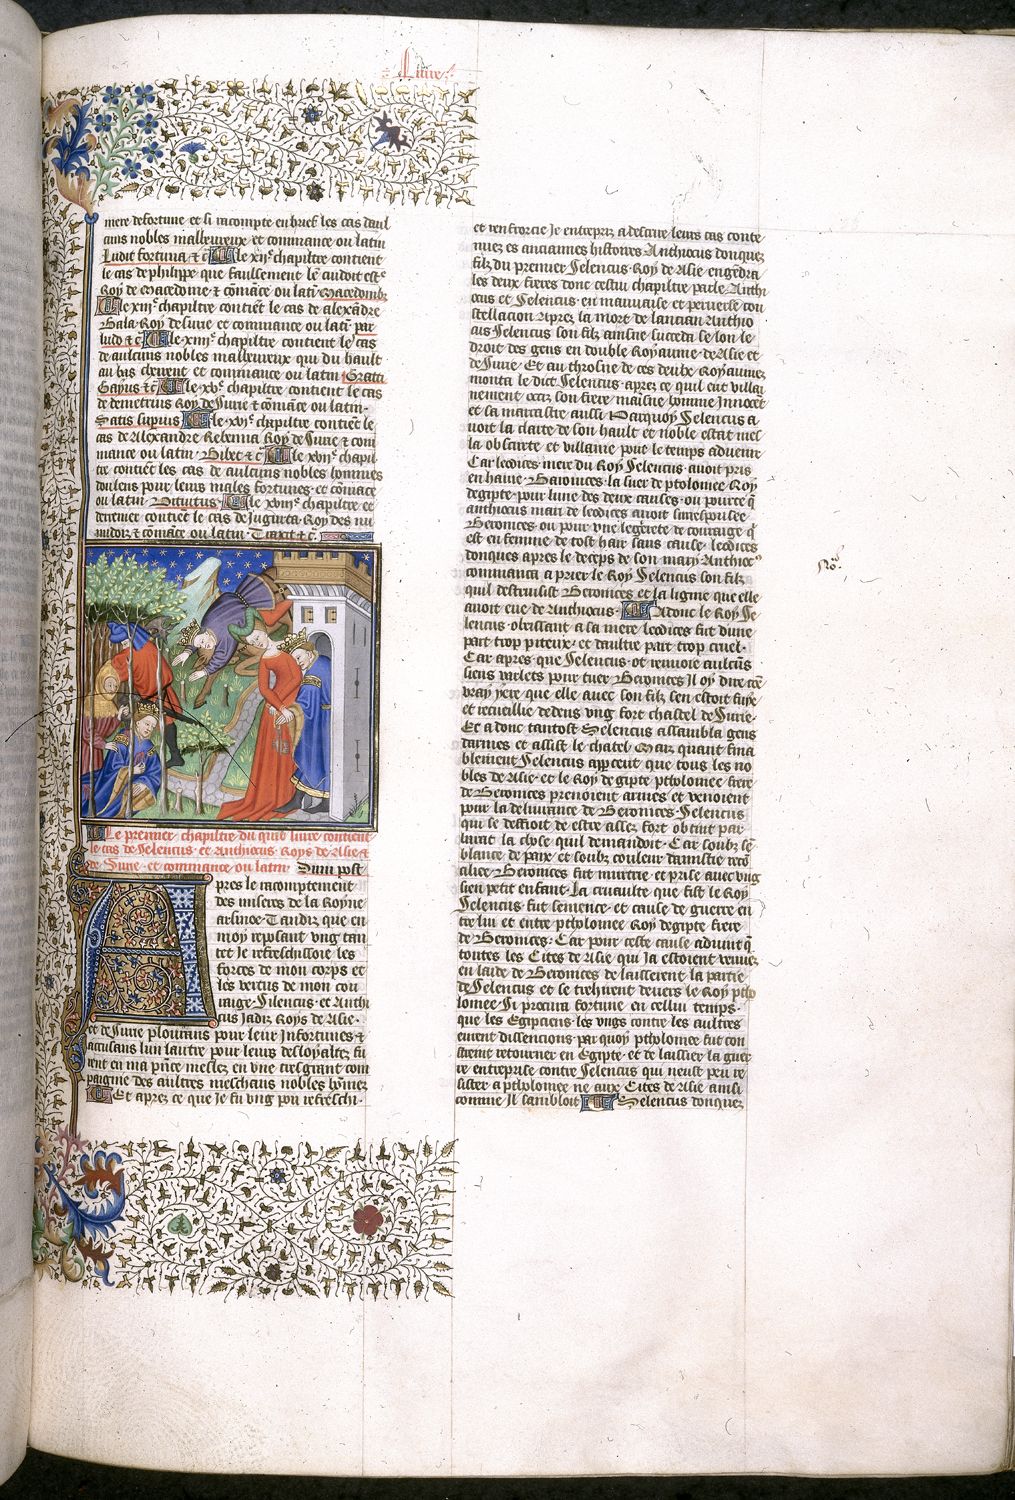 Liure
mere de fortune et si racompte en brief les cas daul
cuns nobles malleureux et commance ou latin
Ludit fortuna ⁊ cͣ Le xijᵉ chapiltre contient
le cas de philippe que faulsement len cuidoit estre
Roy de macedone ⁊ cōmāce ou latī macedonib
Le xiijᵉ chapiltre contiēt le cas de alexādre
Bala Roy de surie et commance ou latī par
ludo ⁊ cͣ Le xiiijᵉ chapiltre contient le cas
de aulcuns nobles malleureux qui du hault
au bas cheirent et commance ou latin Gracci
Gayus ⁊ cͣ Le xvᵉ chapiltre contient le cas
de demetrius Roy de Surie ⁊ cōmāce ou latin
Satis supius Le xvjᵉ chapiltre contiēt le
cas de Alexandre Rebenna Roy de Surie ⁊ com
mance ou latin Bibet ⁊ cͣ Le xvijᵉ chapil
tre contiēt les cas de aulcuns nobles hommes
doulens pour leurs males fortunes et cōmāce
ou latin Bituitus Le xviijᵉ chapiltre et
derrenier contiēt le cas de Jugurta Roy des nu
midoiz ⁊ cōmāce ou latin Traxit ⁊ cͣ
Le premier chapiltre du quīt liure contient
le cas de Seleucus et Anthiocus Roys de Asie ⁊
de Surie et commance ou latin Dum post
Apres le racomptement
des miseres de la Royne
arsinoe Tandiz que en
moy reposant vng tan
tet Je refreschissoie les
forces de mon corps et
les vertus de mon cou
raige Silencus et Anthi
cus Jadiz Roys de Asie
et de Surie plourans pour leur Infortunes ⁊
accusans lun lautre pour leurs desloyaltez fu
rent en ma pñce meslez en vne tresgrant com
paignie des aultres meschans nobles hōmes
Et apres ce que Je fu vng pou refreschi
et renforcie Je entrepriz a descrire leurs cas conte
nuez es anciannes histoires Anthiocus donques
filz du premier Seleucus Roy de Asie engēdra
les deux freres donc cestui chapiltre parle Anthi
ocus et Seleucus en mauuaise et peruerse con
stellacion Apres la mort de lancian Anthio
cus Seleucus son filz ainsne succeda selon le
droit des gens en double Royaume de Asie et
de Surie Et au throsne de ces deulx Royaumes
monta le dict Seleucus apres ce quil eut villai
nement occiz son frere maisne homme Innocēt
et sa marrastre aussi Parquoy Seleucus a
uoit la clarte de son hault et noble estat mes
la obscurte et villainie pour le temps aduenir
Car leodices mere du Roy Seleucus auoit pris
en haine Beronices la suer de ptolomee Roy
degipte pour lune des deux causes ou pource q̄
anthiocus mari de leodices auoit surespousee
Beronices ou pour vne legierete de couraige q̄
est en femme de tost hair sans cause leodices
donques apres le deceps de son mary Anthiocᵒ
commanca a prier le Roy Seleucus son filz
quil destruisist Beronices et la ligne que elle
auoit eue de Anthiocus Adonc le Roy Se
leucus obeissant a sa mere leodices fut dune
part trop piteux et daultre part trop cruel
Car apres que Seleucus ot enuoie aulcūs
siens varlets pour tuer Beronices Il oy dire cōe
vray yere que elle auec son filz sen estoit fuye
et recueillie dedens vng fort chastel de Surie
Et adonc tantost Seleucus assambla gens
darmes et assist le chastel Maiz quant fina
blement Seleucus appceut que tous les no
bles de Asie et le Roy degipte ptholomee frere
de Beronices prenoient armes et venoient
pour la deliurance de Beronices Seleucus
qui se deffioit de estre assez fort obtint par
barat la chose quil demandoit Car soubz sē
blance de paix et soubz couleur damistie recō
cilice Beronices fut murtrie et prise auec vng
sien petit enfant La cruaulte que fist le Roy
Seleucus fut semence et cause de guerre en
tre lui et entre ptholomee Roy degipte frere
de Beronices Car pour ceste cause aduint q̄
toutes les Cites de Asie qui Ja estoient venues
en laide de Beronices delaisserent la partie
de Seleucus et se trehirent deuers le Roy pto
lomee Si procura fortune en cellui temps
que les Egipciens les vngs contre les aultres
eurent dissencions par quoy ptholomee fut con
streint retourner en Egipte et de laissier la guer
re entreprise contre Seleucus qui neust peu re
sister a ptholomee ne aux Cites de Asie ainsi
comme Il sambloit Seleucus donques
Noᵃ